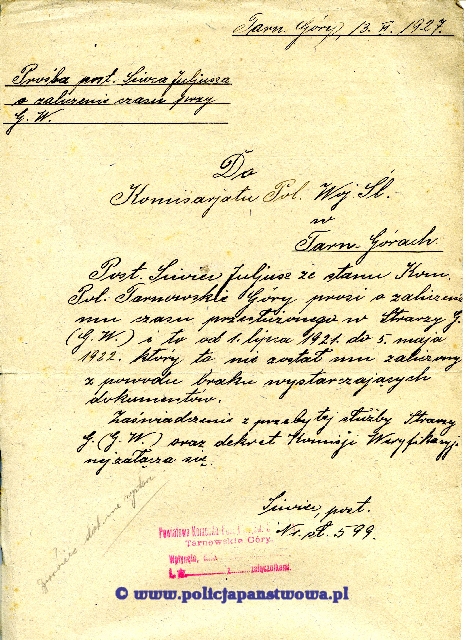 Tarn. Góry, 13. VI. 1927.
Prośba post. Siwca Juljusza
o zaliczenie czasu przy
G. W.
Do
Komisarjatu Pol. Woj. Śl.
w
Tarn. Górach.
Post. Siwiec Juljusz ze stanu Kom.
Pol. Tarnowskie Góry prosi o zaliczenie
mu czasu przesłużonego w Straży G.
(G. W.) i to od 1. lipca 1921. do 5. maja
1922. który to nie został mu zaliczony
z powodu braku wystarczających
dokumentów.
Zaświadczenie z przebytej służby Straży
G. (G. W.) oraz dekret Komisji Weryfikacyj-
nej załącza się.
Siwiec, post.
Nr. sł. 599.
Powiatowa Komenda
Tarnowskie Góry.
Wpłynęło, dnia
L. dz. załącznikami.
© www.policjapanstwowa.pl